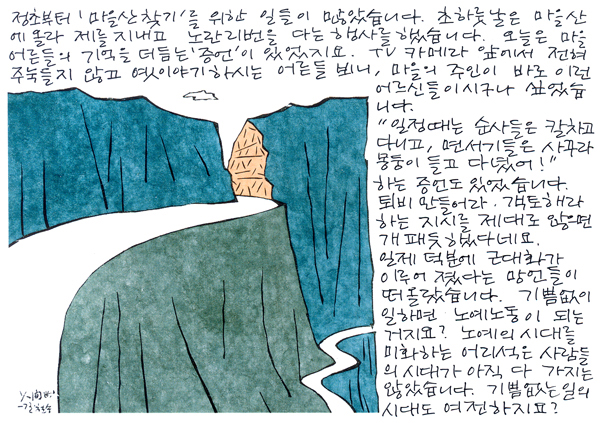 정초부터 '마을산 찾기'를 위한 일들이 많았습니다. 초하룻날은 마을산
에 올라 제를 지내고 노란리번을 다는 행사를 했습니다. 오늘은 마을
어른들의 기억을 더듬는 '증언'이 있었지요. TV 카메라 앞에서 전혀
주눅들지 않고 옛이야기하시는 어른들 뵈니, 마을의 주인이 바로 이런
어르신들이시구나 싶었습
니다.
"일정때는 순사들은 칼차고
다니고, 면서기들은 사꾸라
몽둥이 들고 다녔어!"
하는 증언도 있었습니다.
퇴비 만들어라·객토해라
하는 지시를 제대로 않으면
개 패듯 했다네요.
일제 덕분에 근대화가
이루어 졌다는 망언들이
떠올랐습니다. 기쁨없이
일하면 노예노동이 되는
거지요? 노예의 시대를
미화하는 어리석은 사람들
의 시대가 아직 다 가지는
않았습니다. 기쁨없는 일의
시대도 여전하지요?